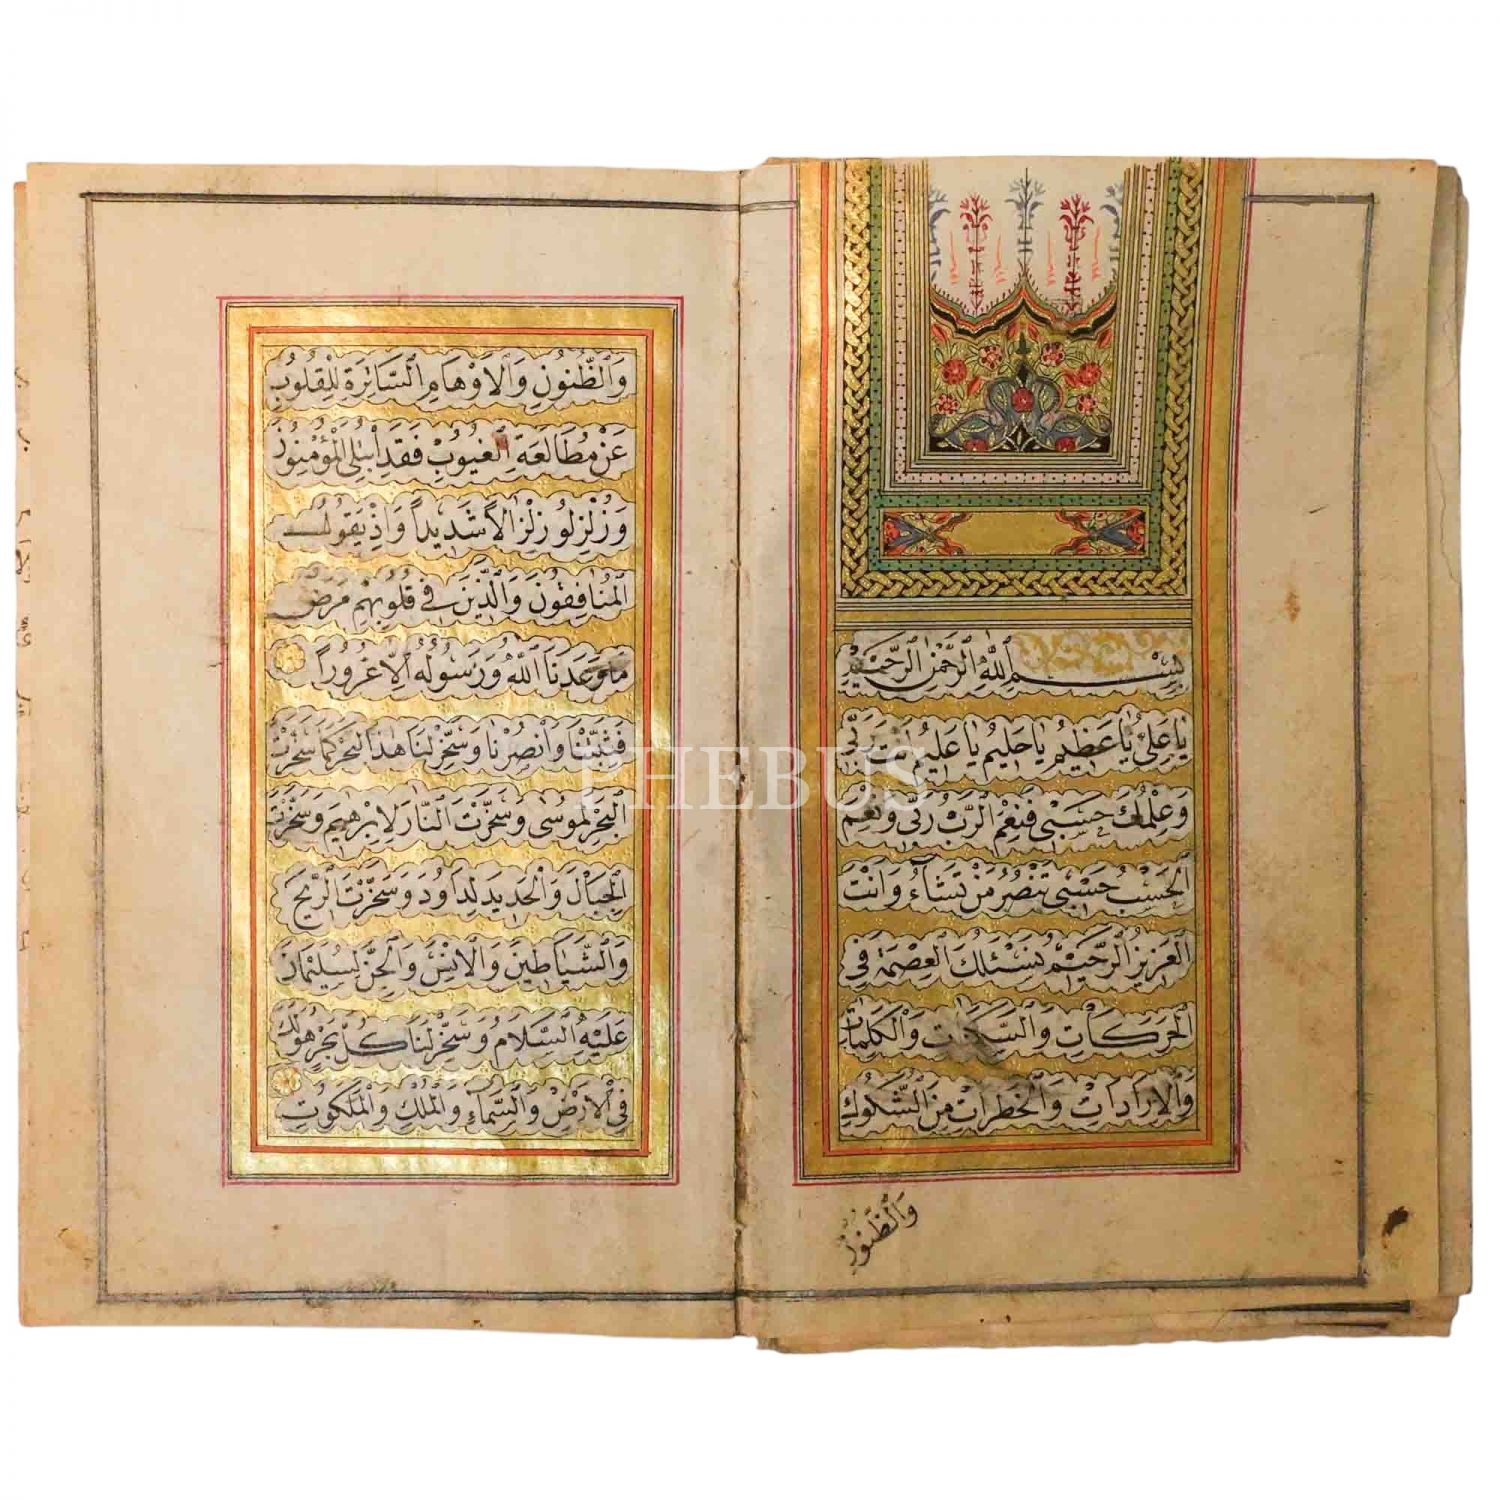 بِسْمِ اللهِ الرَّحْمٰنِ الرَّحِيْمِ
يَا عَلِيُّ يَا عَظِيمُ يَا حَلِيمُ يَا عَلِيمُ اَنْتَ رَبِّى
وَعِلْمُكَ حَسْبِى فَنِعْمَ الرَّبُّ رَبِّى وَنِعْمَ
الْحَسْبُ حَسْبِى تَنْصُرُ مَنْ تَشَاءُ وَاَنْتَ
الْعَزِيزُ الرَّحِيمُ نَسْئَلُكَ الْعِصْمَةَ فِى
الْحَرَكَاتِ وَالسَّكَنَاتِ وَالْكَلِمَاتِ
وَالْاِرَادَاتِ وَالْخَطَرَاتِ مِنَ الشُّكُوكِ
وَالظُّنُونِ
وَالظُّنُونِ وَالْاَوْهَامِ السَّاتِرَةِ لِلْقُلُوبِ
عَنْ مُطَالَعَةِ الْغُيُوبِ فَقَدِ ابْتُلِىَ الْمُؤْمِنُونَ
وَزُلْزِلُو زِلْزَالًا شَدِيدًا وَاِذْ يَقُولُ
الْمُنَافِقُونَ وَالَّذِينَ فِى قُلُوبِهِمْ مَرَضٌ
مَا وَعَدَنَا اللهُ وَرَسُولُهُ اِلَّا غُرُورًا
فَثَبِّتْنَا وَانْصُرْنَا وَسَخِّرْ لَنَا هٰذَا الْبَحْرَ كَمَا سَخَّرْتَ
الْبَحْرَ لِمُوسٰى وَسَخَّرْتَ النَّارَ لِاِبْرٰهِيمَ وَسَخَّرْتَ
الْجِبَالَ وَالْحَدِيدَ لِدَاوُدَ وَسَخَّرْتَ الرِّيحَ
وَالشَّيَاطِينَ وَالْاِنْسَ وَالْجِنَّ لِسُلَيْمَانَ
عَلَيْهِ السَّلَامُ وَسَخِّرْ لَنَا كُلَّ بَحْرٍ هُوَ لَكَ
فِى الْاَرْضِ وَالسَّمَاءِ وَالْمُلْكِ وَالْمَلَكُوتِ
PHEBUS